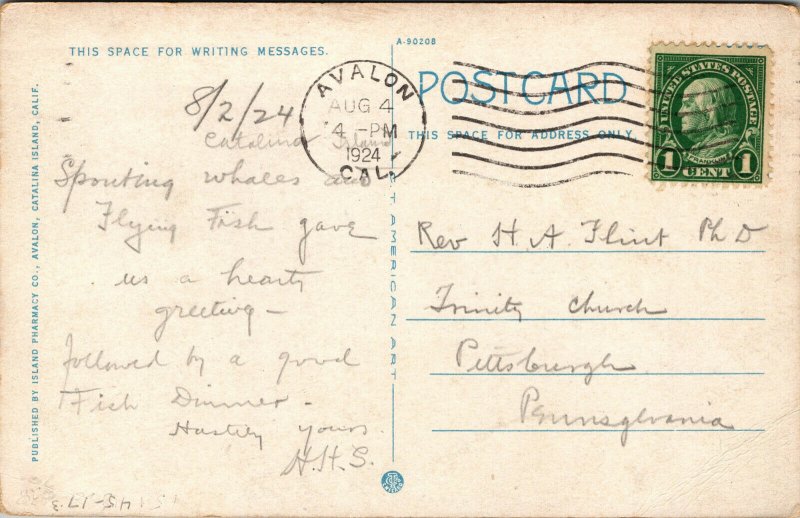 THIS SPACE FOR WRITING MESSAGES.
A-90208
POSTCARD
THIS SPACE FOR ADDRESS ONLY
UNITED STATES POSTAGE
FRANKLIN
1 CENT 1
AVALON
AUG 4
4 -PM
1924
CAL.
8/2/24
Catalina Island
Spouting whales and
Flying Fish gave
us a hearty
greeting -
followed by a good
Fish Dinner -
Hastily yours
H.H.S.
Rev H. A. Flint Ph D
Trinity Church
Pittsburgh
Pennsylvania
PUBLISHED BY ISLAND PHARMACY CO., AVALON, CATALINA ISLAND, CALIF.
AMERICAN ART